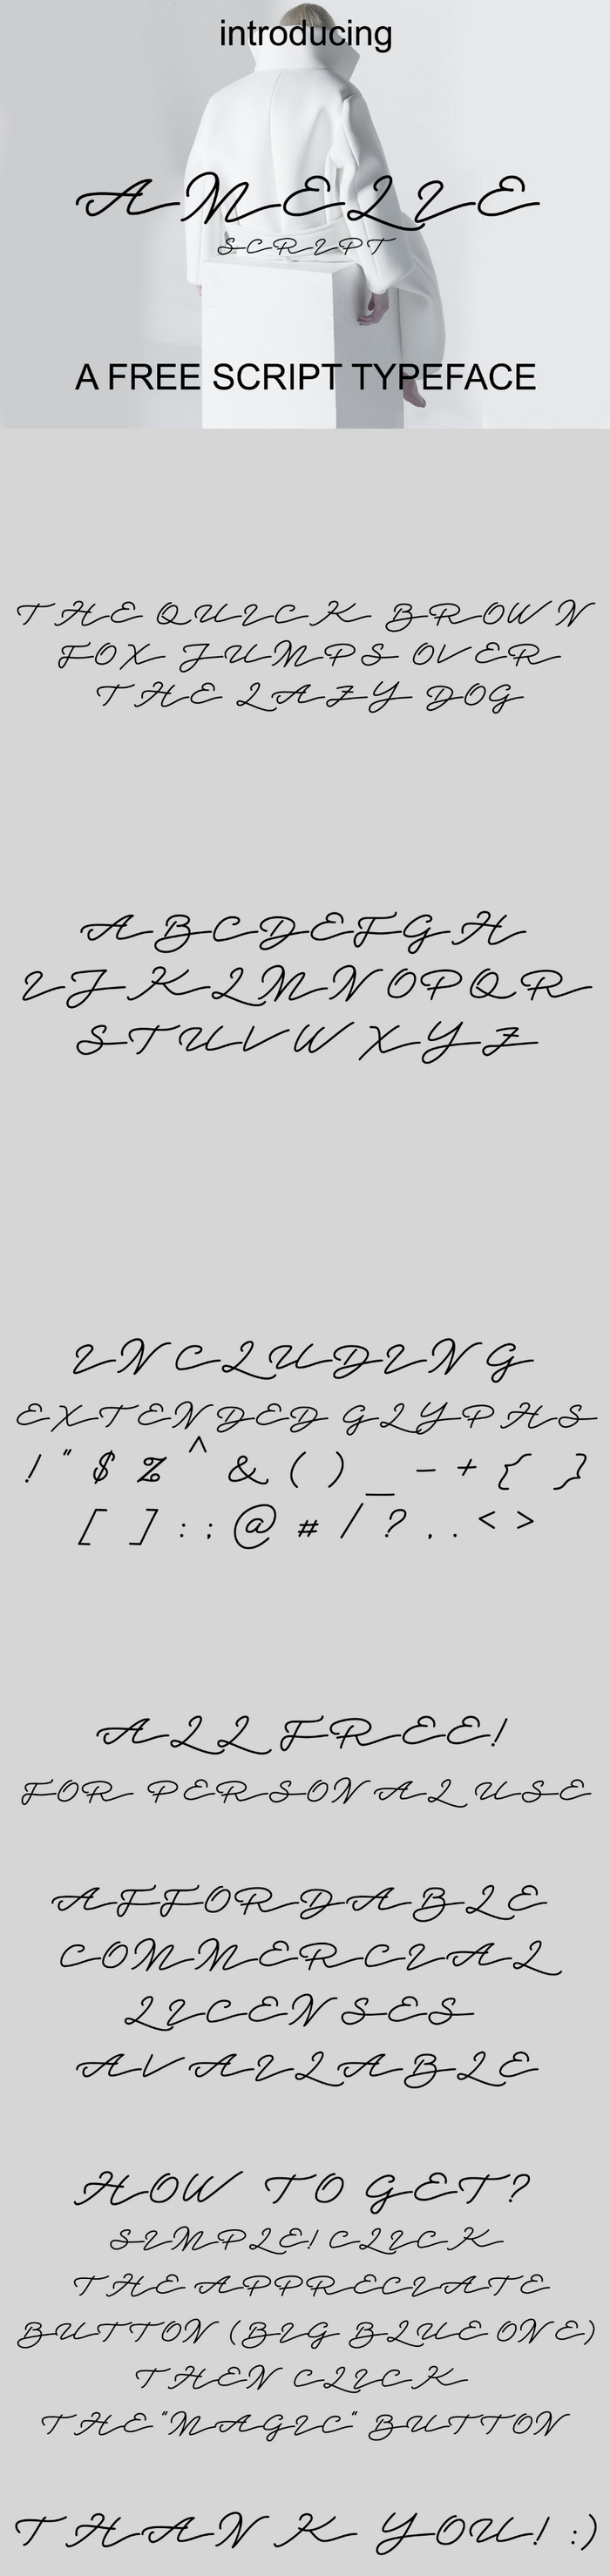 introducing
AMELIE
SCRIPT
A FREE SCRIPT TYPEFACE
THE QUICK BROWN
FOX JUMPS OVER
THE LAZY DOG
ABCDEFGH
IJKLMNOPQR
STUVWXYZ
INCLUDING
EXTENDED GLYPHS
! " $ % ^ & ( ) _ - + { }
[ ] : ; @ # / ? , . < >
ALL FREE!
FOR PERSONAL USE
AFFORDABLE
COMMERCIAL
LICENSES
AVAILABLE
HOW TO GET?
SIMPLE! CLICK
THE APPRECIATE
BUTTON (BIG BLUE ONE)
THEN CLICK
THE "MAGIC" BUTTON
THANK YOU! :)